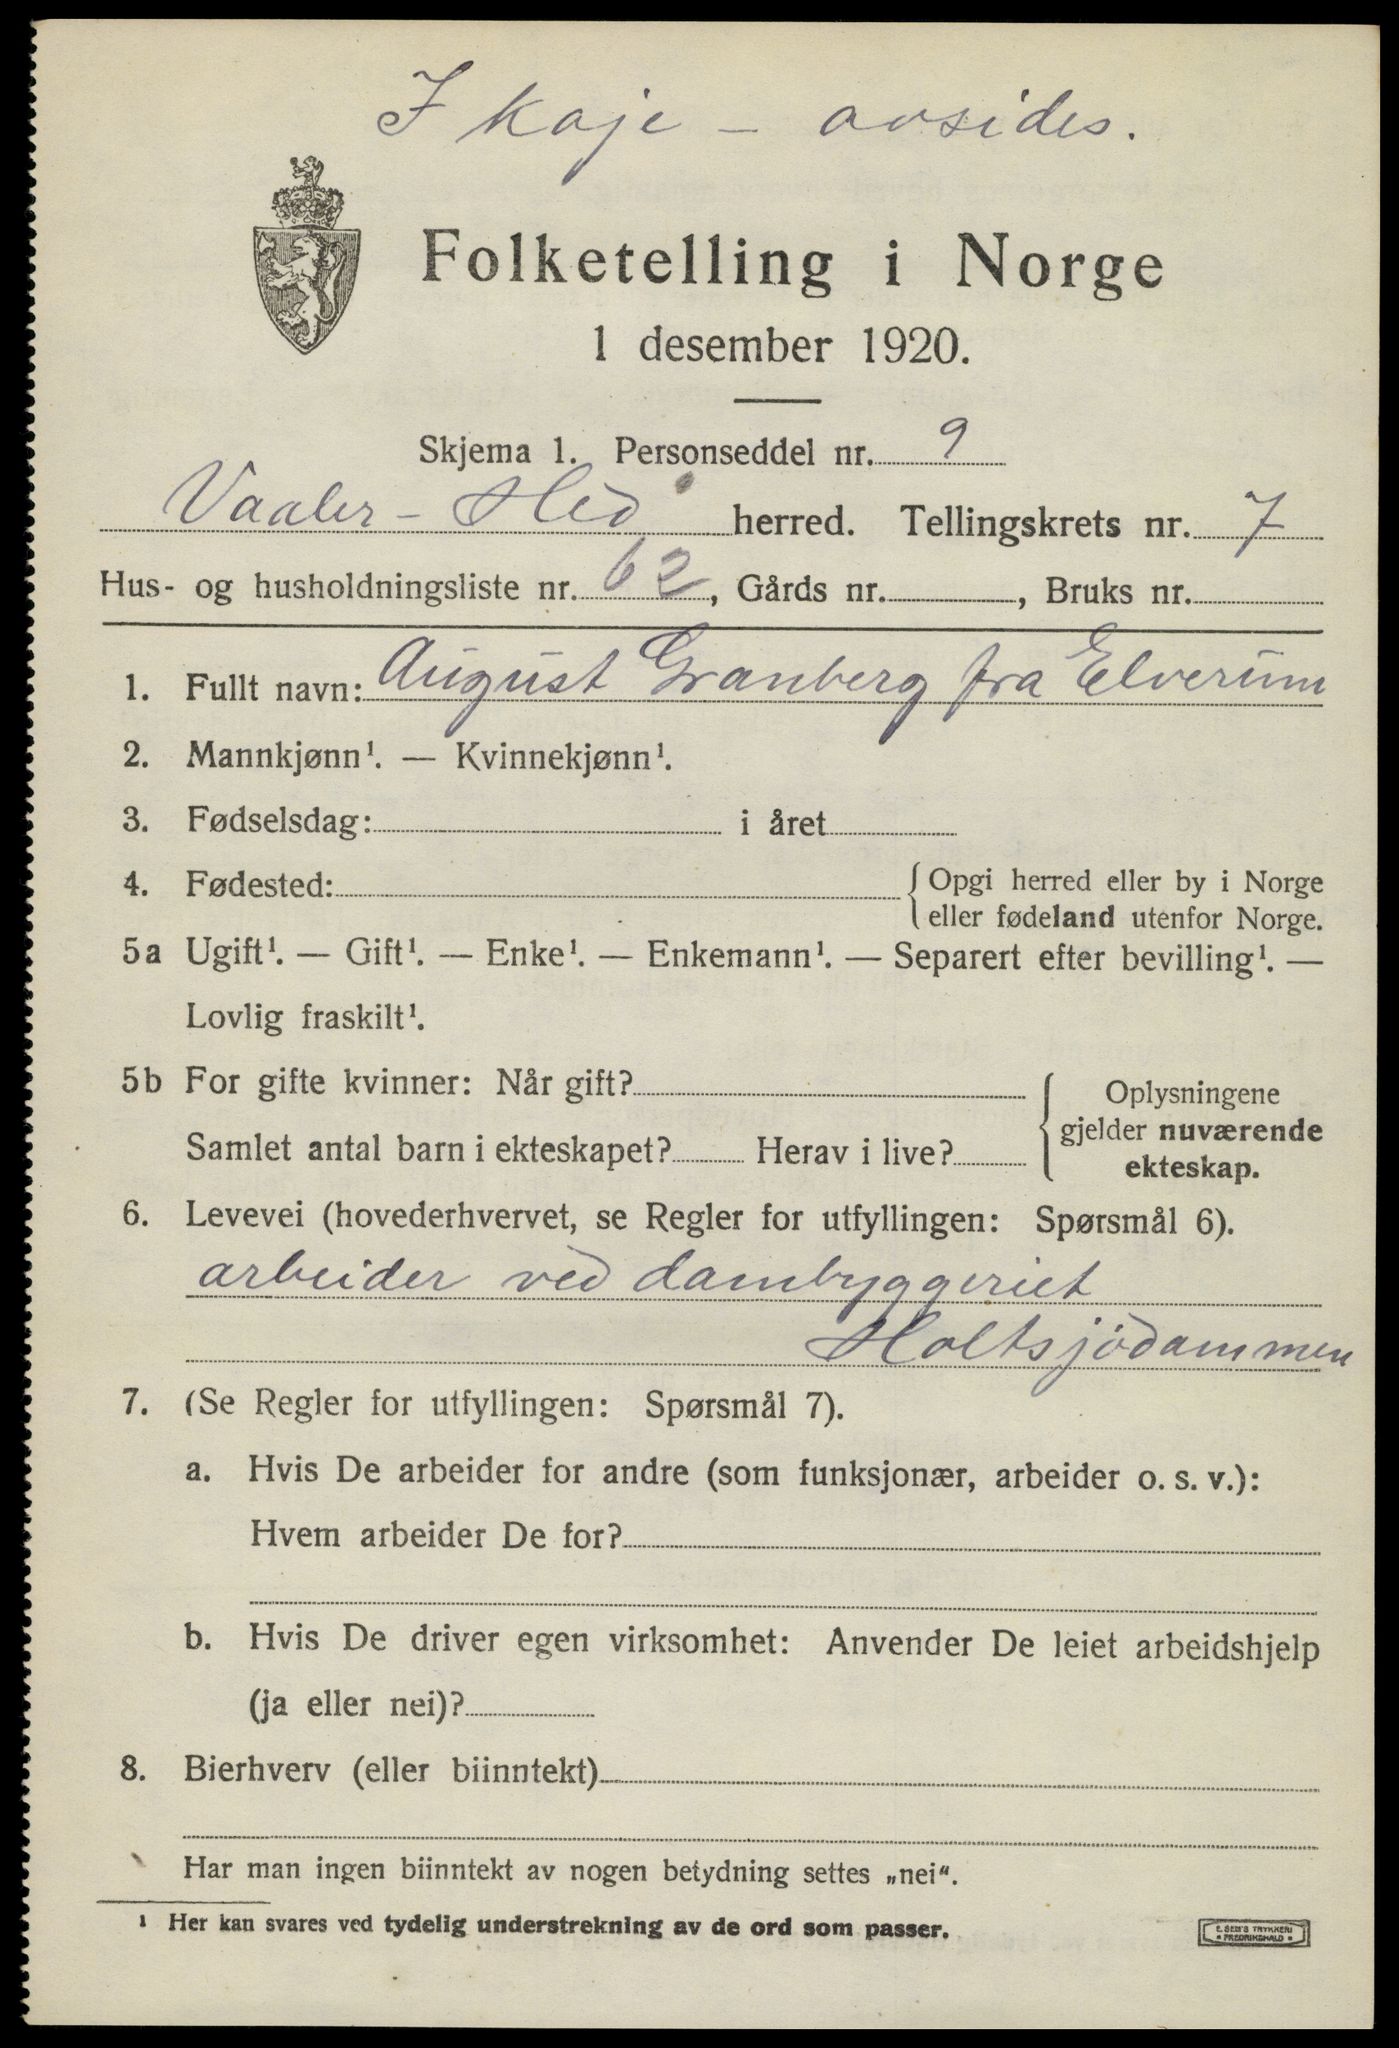 I koje - avsides.
Folketelling i Norge
1 desember 1920.
Skjema 1. Personseddel nr. 9
Vaaler - Hed herred. Tellingskrets nr. 7
Hus- og husholdningsliste nr. 62, Gårds nr. , Bruks nr.
1. Fullt navn: August Granberg fra Elverum
2. Mannkjønn¹. — Kvinnekjønn¹.
3. Fødselsdag: i året
4. Fødested: { Opgi herred eller by i Norge
eller fødeland utenfor Norge.
5a Ugift¹. — Gift¹. — Enke¹. — Enkemann¹. — Separert efter bevilling¹. —
Lovlig fraskilt¹.
5b For gifte kvinner: Når gift?
Samlet antal barn i ekteskapet? Herav i live?
Oplysningene
gjelder nuværende
ekteskap.
6. Levevei (hovederhvervet, se Regler for utfyllingen: Spørsmål 6).
arbeider ved dambyggeriet
Holtsjødammen
7. (Se Regler for utfyllingen: Spørsmål 7).
a. Hvis De arbeider for andre (som funksjonær, arbeider o. s. v.):
Hvem arbeider De for?
b. Hvis De driver egen virksomhet: Anvender De leiet arbeidshjelp
(ja eller nei)?
8. Bierhverv (eller biinntekt)
Har man ingen biinntekt av nogen betydning settes „nei“.
¹ Her kan svares ved tydelig understrekning av de ord som passer.
E. SEM'S TRYKKERI
• FREDRIKSHALD •